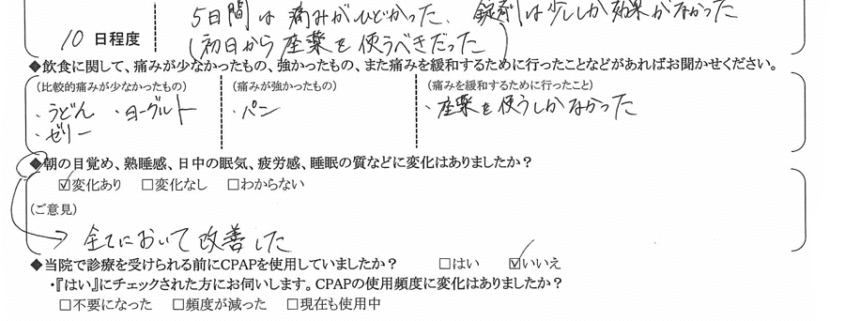 5日間は痛みがひどかった、錠剤は少ししか効果がなかった
10 日程度 (初日から座薬を使うべきだった)
◆飲食に関して、痛みが少なかったもの、強かったもの、また痛みを緩和するために行ったことなどがあればお聞かせください。
(比較的痛みが少なかったもの) (痛みが強かったもの) (痛みを緩和するために行ったこと)
・うどん ・ヨーグルト ・パン ・座薬を使うしかなかった
・ゼリー
◆朝の目覚め、熟睡感、日中の眠気、疲労感、睡眠の質などに変化はありましたか?
☑変化あり □変化なし □わからない
(ご意見)
全てにおいて改善した
◆当院で診療を受けられる前にCPAPを使用していましたか? □はい ☑いいえ
・『はい』にチェックされた方にお伺いします。CPAPの使用頻度に変化はありましたか?
□不要になった □頻度が減った □現在も使用中